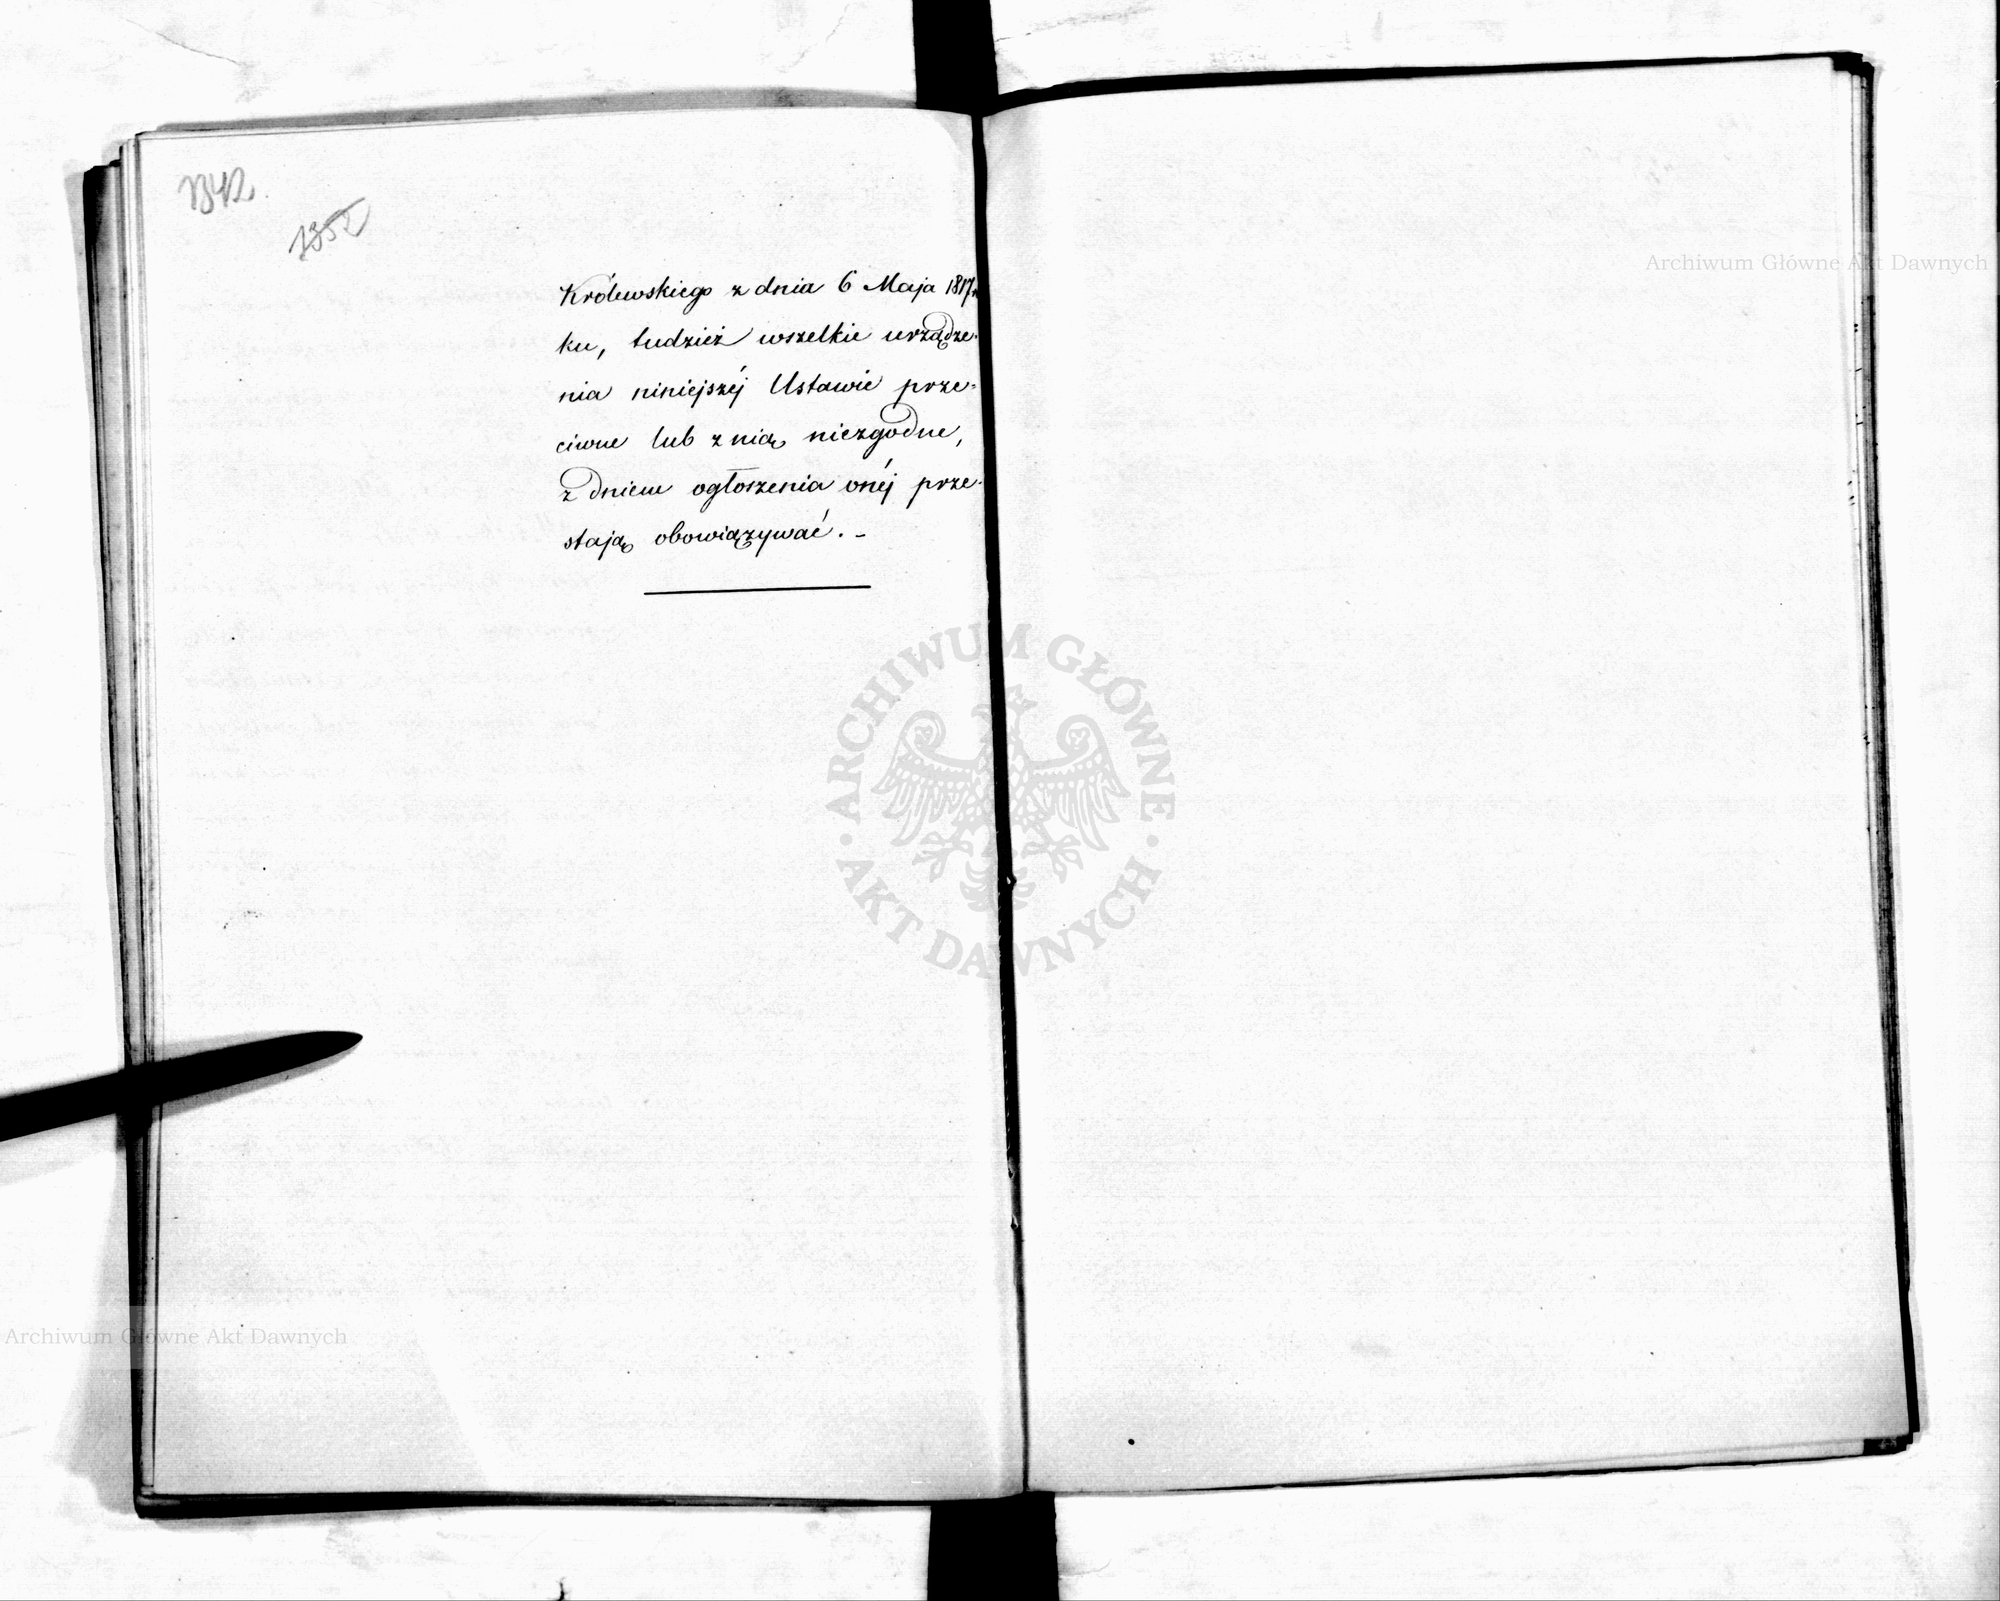 1342.
1352
Królewskiego z dnia 6 Maja 1817 r
ku, tudzież wszelkie urządze-
nia niniejszéj Ustawie prze-
ciwne lub z nią niezgodne,
z dniem ogłoszenia onéj prze-
stają obowiązywać. -
Archiwum Główne Akt Dawnych
ARCHIWUM GŁÓWNE · AKT DAWNYCH ·
Archiwum Główne Akt Dawnych